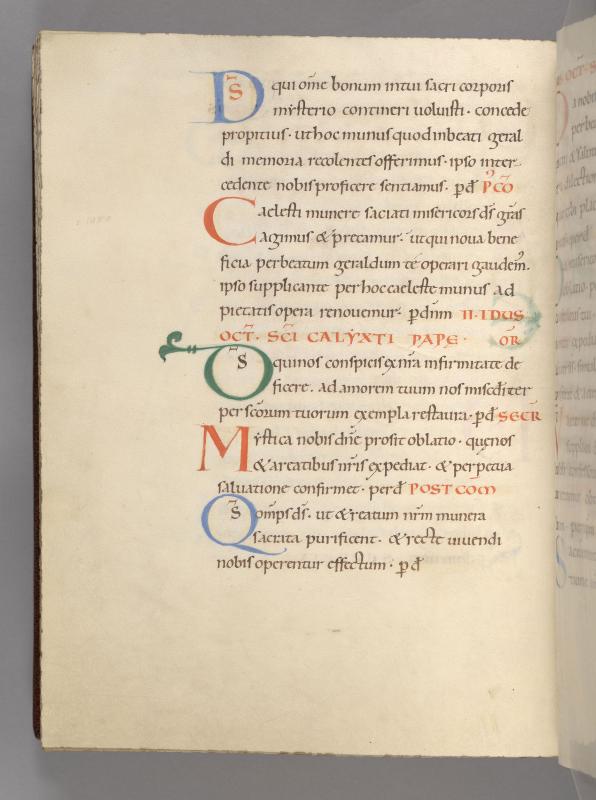 D̄S qui om̄e bonum intui sacri corporis
mysterio contineri uoluisti · concede
propitius · ut hoc munus quod inbeati geral
di memoria recolentes offerimus · ipso inter
cedente nobis proficere sentiamus · p̄ d̄ P̄CO
Caelesti munere saciati misericors d̄s gr̄as
agimus & precamur · ut qui noua bene
ficia per beatum geraldum te operari gaudem̄ ·
ipso supplicante per hoc caeleste munus ad
pietatis opera renouemur · p̄ dn̄m II · IDUS
OCT̄ · SC̄I CALYXTI PAPE · OR̄
D̄S qui nos conspicis ex n̄ra infirmitate de
ficere · ad amorem tuum nos misc̄dit̄er
per sc̄orum tuorum exempla restaura · p̄ d̄ SECR
Mystica nobis dn̄e prosit oblatio · que nos
& a reatibus n̄ris expediat · & perpetua
saluatione confirmet · per d̄ POST COM
Q̄S omp̄s d̄s · ut & reatum n̄rm munera
sacrata purificent · & recte uiuendi
nobis operentur effectum · p̄ d̄